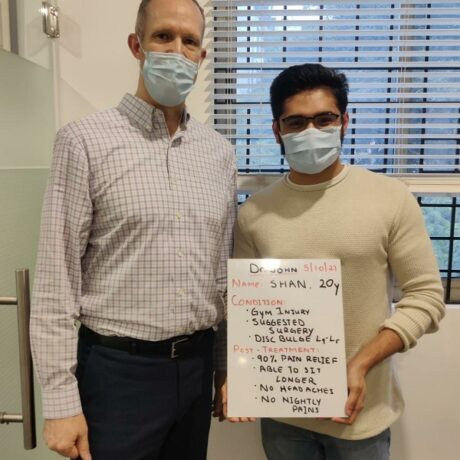 Dr. JOHN 5/10/21
NAME: SHAN, 20y
CONDITION:
· GYM INJURY
· SUGGESTED
SURGERY
· DISC BULGE L4-L5
POST-TREATMENT:
· 90% PAIN RELIEF
· ABLE TO SIT
LONGER
· NO HEADACHES
· NO NIGHTLY
PAINS